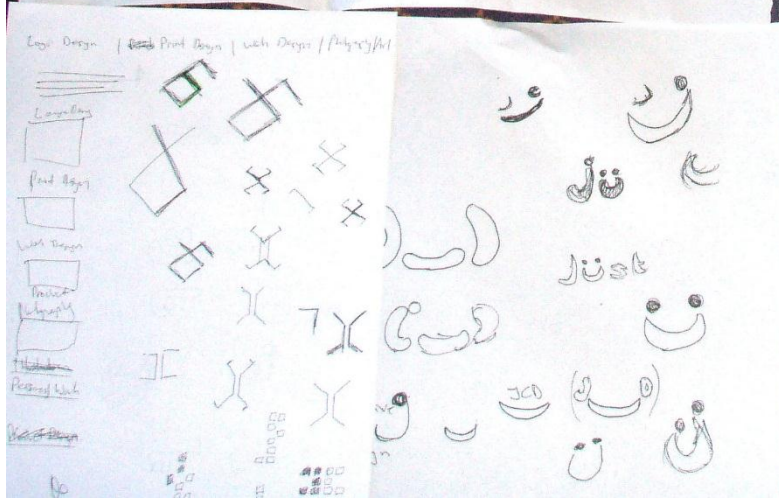 Logo Design | Print Design | Web Design | Photography/Art
Logo Design
Print Design
Web Design
Product
Photography
Personal Work
Jü
Jüst
JCD